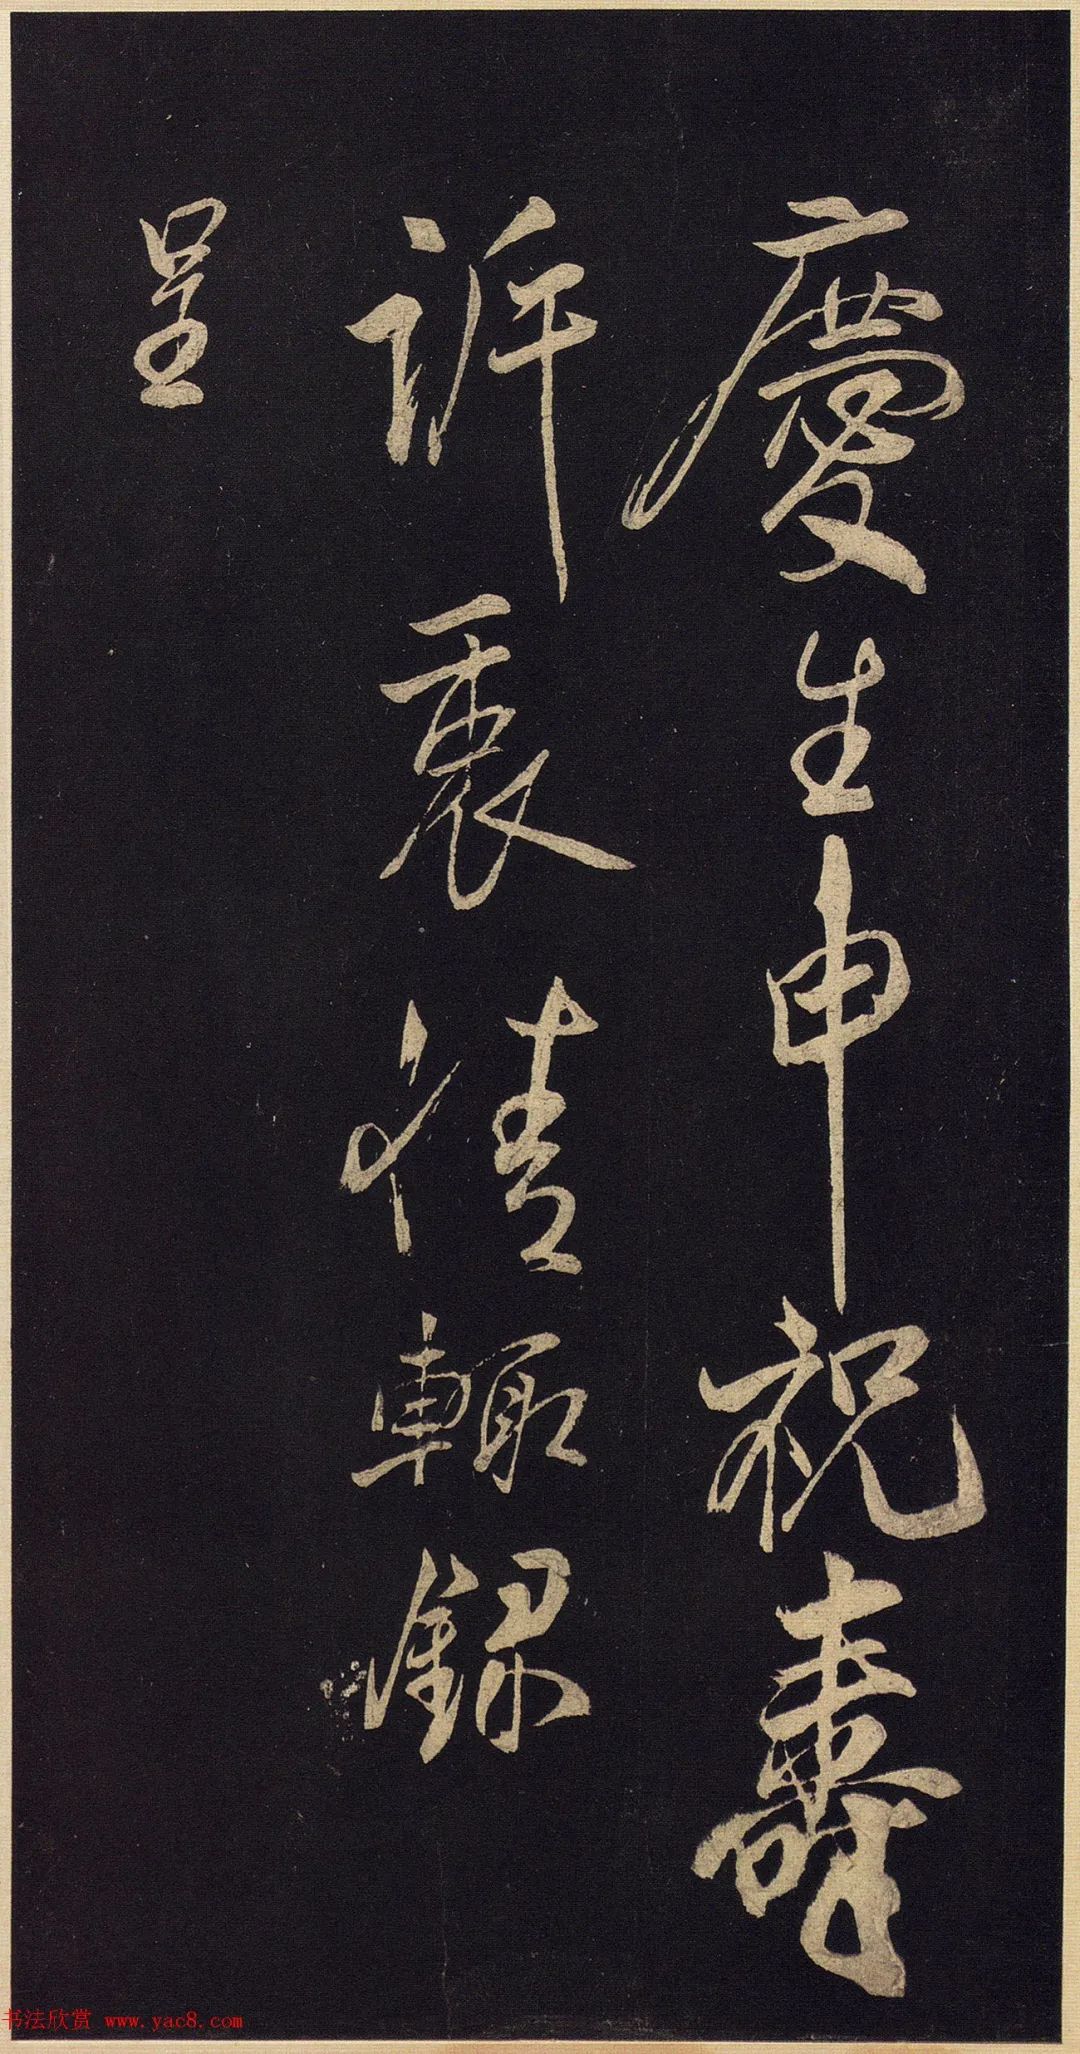 慶生申祝壽
訴衷情輒錄
呈
书法欣赏 www.yac8.com